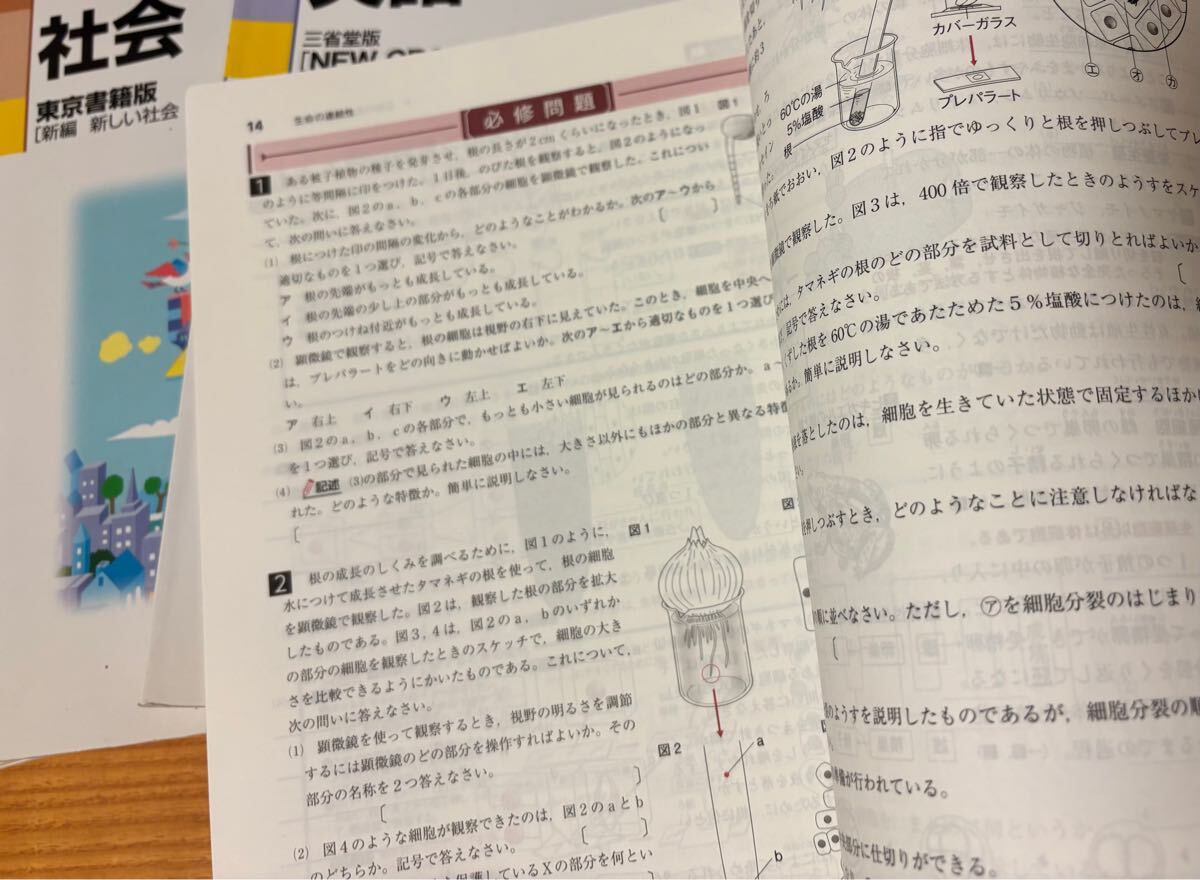 社会
東京書籍版
[新編 新しい社会
三省堂版
14
生命の連続性
必修問題
1 ある種子植物の種子を発芽させ，根の長さが2cmくらいになったとき，図1
のように等間隔に印をつけた。1日後，のびた根を観察すると，図2のようになっ
ていた。次に，図2のa，b，cの各部分の細胞を顕微鏡で観察した。これについ
て，次の問いに答えなさい。
図1
(1) 根につけた印の間隔の変化から，どのようなことがわかるか。次のア〜ウから
適切なものを1つ選び，記号で答えなさい。
ア 根の先端がもっとも成長している。
イ 根の先端の少し上の部分がもっとも成長している。
ウ 根のつけね付近がもっとも成長している。
(2) 顕微鏡で観察すると，根の細胞は視野の右下に見えていた。このとき，細胞を中央へ
は，プレパラートをどの向きに動かせばよいか。次のア〜エから適切なものを1つ選び
い。
ア 右上 イ 右下 ウ 左上 エ 左下
(3) 図2のa，b，cの各部分で，もっとも小さい細胞が見られるのはどの部分か。a〜
を1つ選び，記号で答えなさい。
(4) 記述 (3)の部分で見られた細胞の中には，大きさ以外にもほかの部分と異なる特徴
れた。どのような特徴か。簡単に説明しなさい。
[
2 根の成長のしくみを調べるために，図1のように，
水につけて成長させたタマネギの根を使って，根の細胞
を顕微鏡で観察した。図2は，観察した根の部分を拡大
したものである。図3，4は，図2のa，bのいずれか
の部分の細胞を観察したときのスケッチで，細胞の大き
さを比較できるようにかいたものである。これについて，
次の問いに答えなさい。
(1) 顕微鏡を使って観察するとき，視野の明るさを調節
するには顕微鏡のどの部分を操作すればよいか。その
部分の名称を2つ答えなさい。
[ ]
(2) 図4のような細胞が観察できたのは，図2のaとb
のどちらか。記号で答えなさい。 [ ]
保護しているXの部分を何とい
図1
図2
a
b
図
カバーガラス
プレパラート
60℃の湯
5%塩酸
根
㋓
㋔
㋕
紙でおおい，図2のように指でゆっくりと根を押しつぶしてプレ
鏡で観察した。図3は，400倍で観察したときのようすをスケ
は，タマネギの根のどの部分を試料として切りとればよいか
記号で答えなさい。 [
した根を60℃の湯であたためた5%塩酸につけたのは，
るか。簡単に説明しなさい。
を落としたのは，細胞を生きていた状態で固定するほか
押しつぶすとき，どのようなことに注意しなければな
順に並べなさい。ただし，㋐を細胞分裂のはじまり
[
のようすを説明したものであるが，細胞分裂の順
準備が行われている。
部分に仕切りができる。